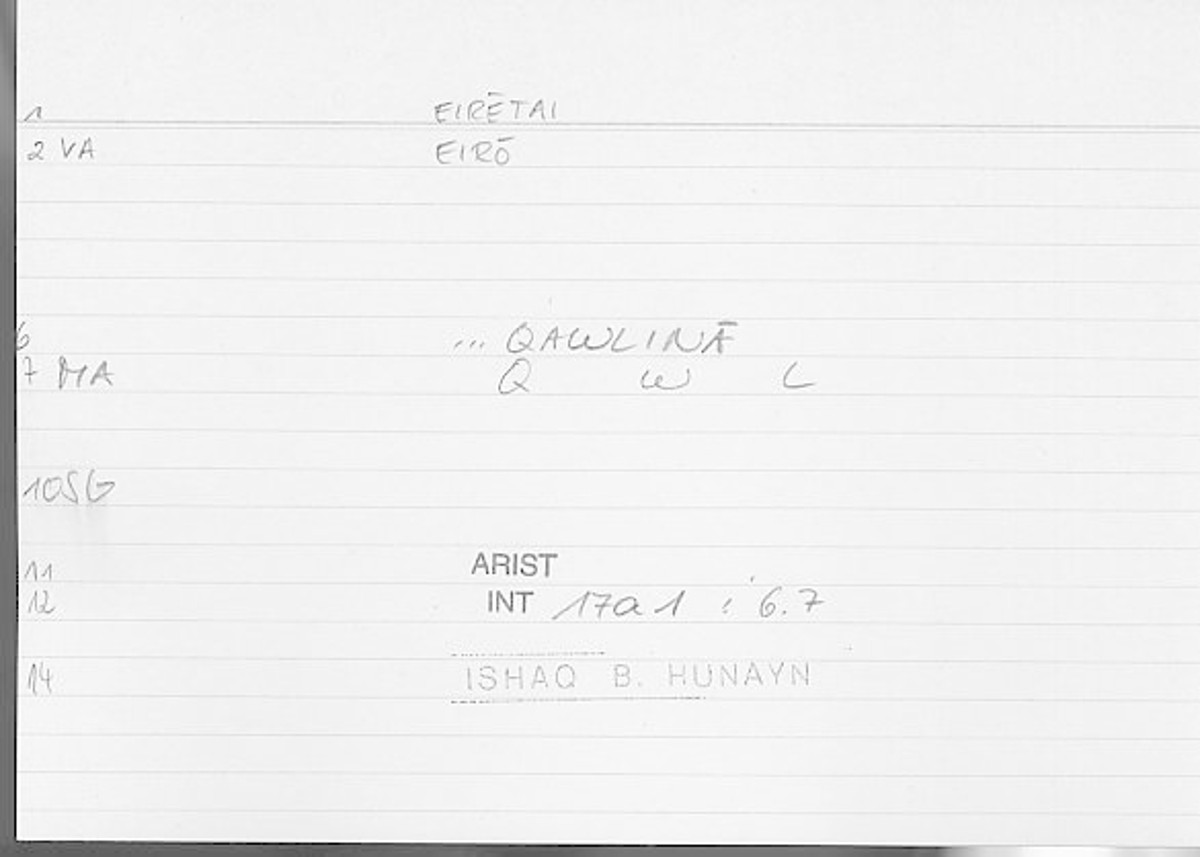 1 EIRĒTAI
2 VA EIRŌ
6 ... QAWLINĀ
7 MA Q W L
10SG
11 ARIST
12 INT 17a1 : 6.7
14 ISHAQ B. HUNAYN